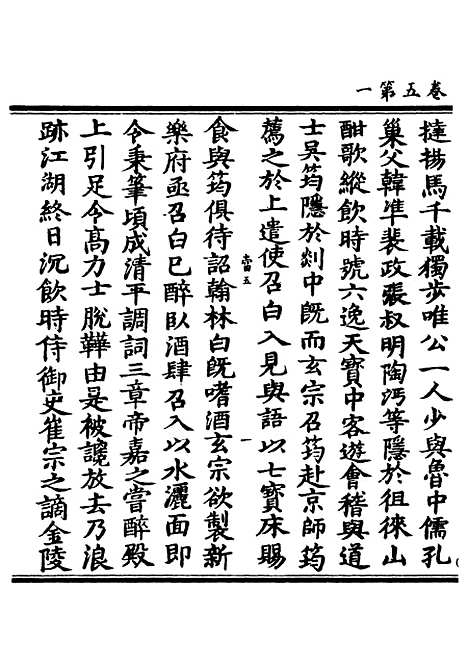 卷五第一
撻揚馬千載獨步唯公一人少與魯中儒孔
巢父韓準裴政張叔明陶沔等隱於徂徠山
酣歌縱飲時號六逸天寶中客遊會稽與道
士吳筠隱於剡中旣而玄宗召筠赴京師筠
薦之於上遣使召白入見與語以七寶床賜
畱五 一
食與筠俱待詔翰林白旣嗜酒玄宗欲製新
樂府亟召白已醉臥酒肆召入以水灑面即
令秉筆頃成清平調詞三章帝嘉之嘗醉殿
上引足令高力士脫鞾由是被讒放去乃浪
跡江湖終日沉飲時侍御史崔宗之謫金陵